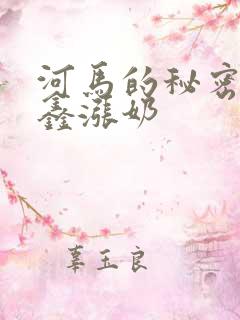 河马的秘密
鑫涨奶
辜玉良